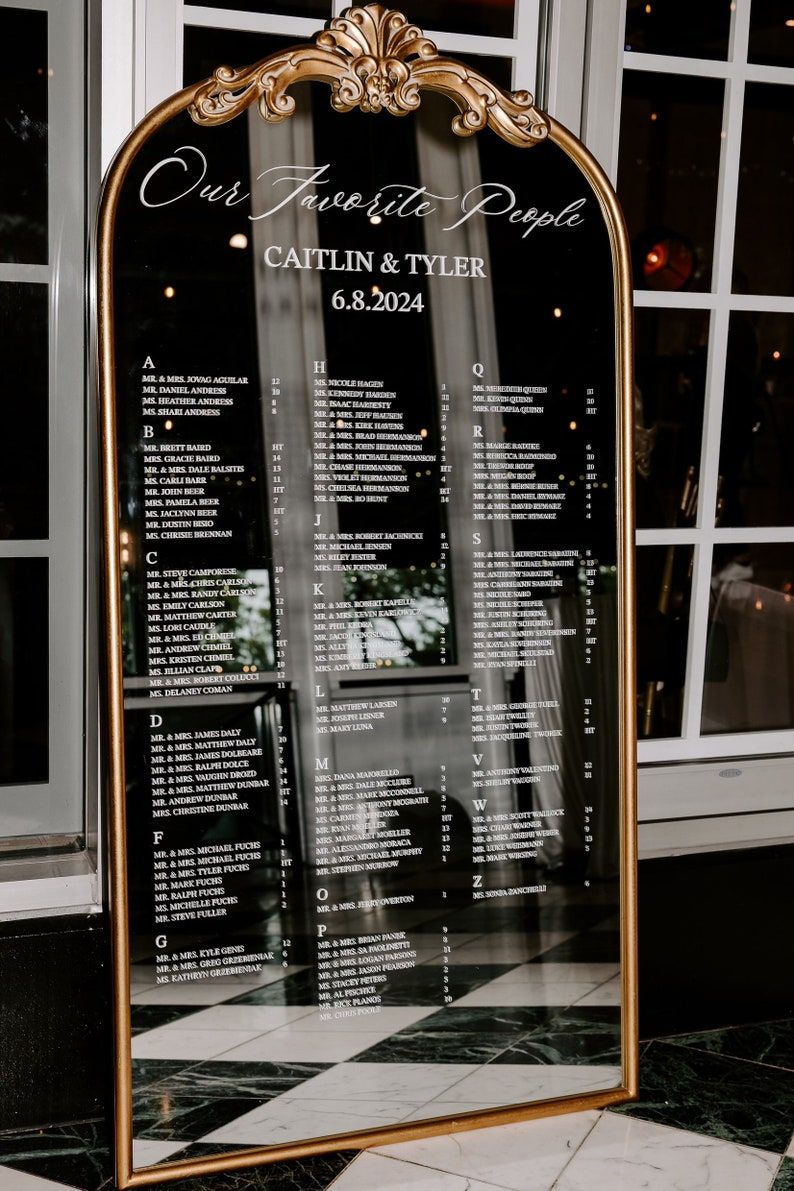 Our Favorite People
CAITLIN & TYLER
6.8.2024
A
MR. & MRS. JOVAG AGUILAR 12
MR. DANIEL ANDRESS 10
MS. HEATHER ANDRESS 8
MS. SHARI ANDRESS 8
B
MR. BRETT BAIRD HT
MRS. GRACIE BAIRD 14
MR. & MRS. DALE BALSITIS 13
MS. CARLI BARR 11
MR. JOHN BEER HT
MRS. PAMELA BEER 7
MS. JACLYNN BEER HT
MR. DUSTIN BISIO 5
MS. CHRISIE BRENNAN 5
C
MR. STEVE CAMPORESE 10
MR. & MRS. CHRIS CARLSON 6
MR. & MRS. RANDY CARLSON 3
MS. EMILY CARLSON 12
MR. MATTHEW CARTER 11
MS. LORI CAUDLE 5
MR. & MRS. ED CHMIEL
MR. ANDREW CHMIEL HT
MRS. KRISTEN CHMIEL 13
MS. JILLIAN CLAPS 10
MR. & MRS. ROBERT COLUCCI 12
MS. DELANEY COMAN 11
D
MR. & MRS. JAMES DALY 7
MR. & MRS. MATTHEW DALY 10
MR. & MRS. JAMES DOLBEARE 7
MR. & MRS. RALPH DOLCE 6
MR. & MRS. VAUGHN DROZD 14
MR. & MRS. MATTHEW DUNBAR 14
MR. ANDREW DUNBAR HT
MRS. CHRISTINE DUNBAR 14
F
MR. & MRS. MICHAEL FUCHS 1
MR. & MRS. MICHAEL FUCHS 1
MR. & MRS. TYLER FUCHS HT
MR. MARK FUCHS 1
MR. RALPH FUCHS 1
MS. MICHELLE FUCHS 1
MR. STEVE FULLER 2
G
MR. & MRS. KYLE GENIS 12
MR. & MRS. GREG GRZEBIENIAK 6
MS. KATHRYN GRZEBIENIAK 6
H
MS. NICOLE HAGEN
MS. KENNEDY HARDEN 11
MR. ISAAC HARDESTY 11
MR. & MRS. JEFF HAUSEN 2
MR. & MRS. KIRK HAVENS 9
MR. & MRS. BRAD HERMANSON 6
MR. & MRS. JOHN HERMANSON 4
MR. & MRS. MICHAEL HERMANSON
MR. CHASE HERMANSON HT
MRS. VIOLET HERMANSON 4
MS. CHELSEA HERMANSON HT
MR. & MRS. BO HUNT 14
J
MR. & MRS. ROBERT JACHNICKI 8
MR. MICHAEL JENSEN 12
MS. RILEY JESTER 2
MRS. JEAN JOHNSON 9
K
MR. & MRS. ROBERT KAPELLE 5
MR. & MRS. KEVIN KARLOWICZ
MR. PHIL KEDRA
MR. JACOB KINGSLAND 2
MS. ALLYNA KINGSLAND 2
MS. KIMBERLY KINGSLAND 2
MRS. AMY KLEHR 9
L
MR. MATTHEW LARSEN 10
MR. JOSEPH LISNER 7
MS. MARY LUNA 9
M
MRS. DANA MAIORELLO 9
MR. & MRS. DALE MCCLURE 3
MR. & MRS. MARK MCCONNELL 8
MR. & MRS. ANTHONY MCGRATH 3
MS. CARMEN MENDOZA 7
MR. RYAN MOELLER HT
MRS. MARGARET MOELLER 13
MR. ALESSANDRO MORACA 13
MR. & MRS. MICHAEL MURPHY 12
MR. STEPHEN MURROW 1
O
MR. & MRS. JERRY OVERTON 1
P
MR. & MRS. BRIAN PANEK 9
MR. & MRS. SA PAOLINETTI 8
MR. & MRS. LOGAN PARSONS 11
MR. & MRS. JASON PEARSON 3
MS. STACEY PETERS 2
MR. AL PISCHKE 5
MR. RICK PLANOS 3
MR. CHRIS POOLE 10
Q
MS. MEREDITH QUEEN 11
MR. KEVIN QUINN 10
MRS. OLIMPIA QUINN HT
R
MS. MARGE RADTKE 6
MS. REBECCA RAIMONDO 10
MR. TREVOR ROOP 10
MRS. MEGAN ROOP HT
MR. & MRS. BERNIE RUSER 8
MR. & MRS. DANIEL RYMARZ 4
MR. & MRS. DAVID RYMARZ 4
MR. & MRS. ERIC RYMARZ 4
S
MR. & MRS. LAURENCE SABATINI 8
MR. & MRS. MICHAEL SABATINI 13
MR. ANTHONY SABATINI HT
MRS. CAREEANN SABATINI 13
MS. NICOLE SABO 3
MS. NICOLE SCHIPER 5
MR. JUSTIN SCHURING 13
MRS. ASHLEY SCHURING HT
MR. & MRS. RANDY SEVERINSEN 7
MS. KAYLA SEVERINSEN HT
MR. MICHAEL SKULSTAD 6
MR. RYAN SPINELLI 2
T
MR. & MRS. GEORGE TOELL 11
MR. ISIAH TWILLEY 2
MR. JUSTIN TWOREK 4
MRS. JACQUELINE TWOREK HT
V
MR. ANTHONY VALENTINO 12
MS. SHELBY VAUGHN 11
W
MR. & MRS. SCOTT WALLOCK 14
MRS. CHARI WARNER 3
MR. & MRS. JOSEPH WEBER 9
MR. LUKE WEISMANN 13
MR. MARK WIRSING 5
Z
MS. SONIA ZANCHELLI 6